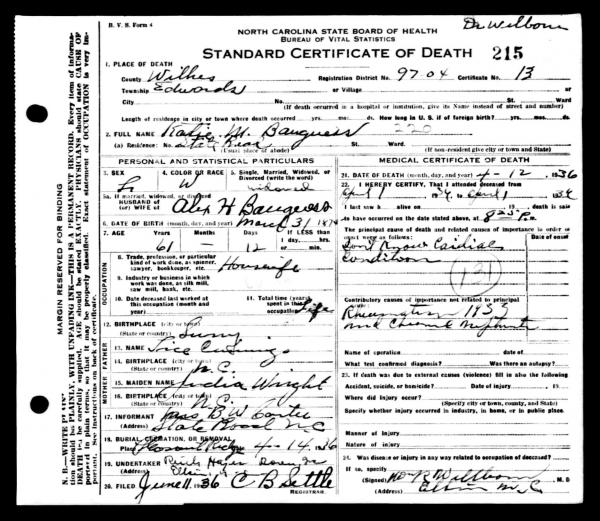 B. V. S. Form 4
Dr Welborn
NORTH CAROLINA STATE BOARD OF HEALTH
BUREAU OF VITAL STATISTICS
STANDARD CERTIFICATE OF DEATH 215
1. PLACE OF DEATH
County Wilkes Registration District No. 97-04 Certificate No. 13
Township Edwards or Village
City No. St. Ward
(If death occurred in a hospital or institution, give its Name instead of street and number)
Length of residence in city or town where death occurred yrs. mos. ds. How long in U. S. if of foreign birth? yrs. mos. ds.
2. FULL NAME Katie M. Bauguess 220
(a) Residence: No. State Road St. Ward
(Usual place of abode) (If non-resident give city or town and State)
PERSONAL AND STATISTICAL PARTICULARS
3. SEX
4. COLOR OR RACE W
5. Single, Married, Widowed, or Divorced (write the word) widowed
5a. If married, widowed, or divorced
HUSBAND of
(or) WIFE of Alex H Bauguess
6. DATE OF BIRTH (month, day, and year) March 31 1874
7. AGE Years 61 Months - Days 12 If LESS than 1 day, hrs. or min.
OCCUPATION
8. Trade, profession, or particular kind of work done, as spinner, sawyer, bookkeeper, etc. Housewife
9. Industry or business in which work was done, as silk mill, saw mill, bank, etc.
10. Date deceased last worked at this occupation (month and year)
11. Total time (years) spent in this occupation Life
12. BIRTHPLACE (city or town) Surry
(State or country)
FATHER
13. NAME
14. BIRTHPLACE (city or town) N.C.
(State or country)
MOTHER
15. MAIDEN NAME Judia Wright
16. BIRTHPLACE (city or town) N.C.
(State or country)
17. INFORMANT Mrs B. W. Carter
(Address) State Road N C
18. BURIAL, CREMATION, OR REMOVAL
Place Pleasant Ridge 4-14 1936
19. UNDERTAKER
(Address) Elkin N.C.
20. FILED June 11 1936 C B Settle
REGISTRAR
MEDICAL CERTIFICATE OF DEATH
21. DATE OF DEATH (month, day, and year) 4-12, 1936
22. I HEREBY CERTIFY, That I attended deceased from
April 19 to April 1
I last saw h alive on , 19 , death is said
to have occurred on the date stated above, at 8 25 P m.
The principal cause of death and related causes of importance in order of onset were as follows: Date of onset
Dont Know Cardiac
Condition
131
Contributory causes of importance not related to principal
Rheumatism 1935
and Chronic Nephritis
Name of operation date of
What test confirmed diagnosis? Was there an autopsy?
23. If death was due to external causes (violence) fill in also the following
Accident, suicide, or homicide? Date of injury , 19
Where did injury occur?
(Specify city or town, county, and State)
Specify whether injury occurred in industry, in home, or in public place.
Manner of injury
Nature of injury
24. Was disease or injury in any way related to occupation of deceased?
If so, specify
(Signed) M. D.
(Address) Elkin N.C.
MARGIN RESERVED FOR BINDING